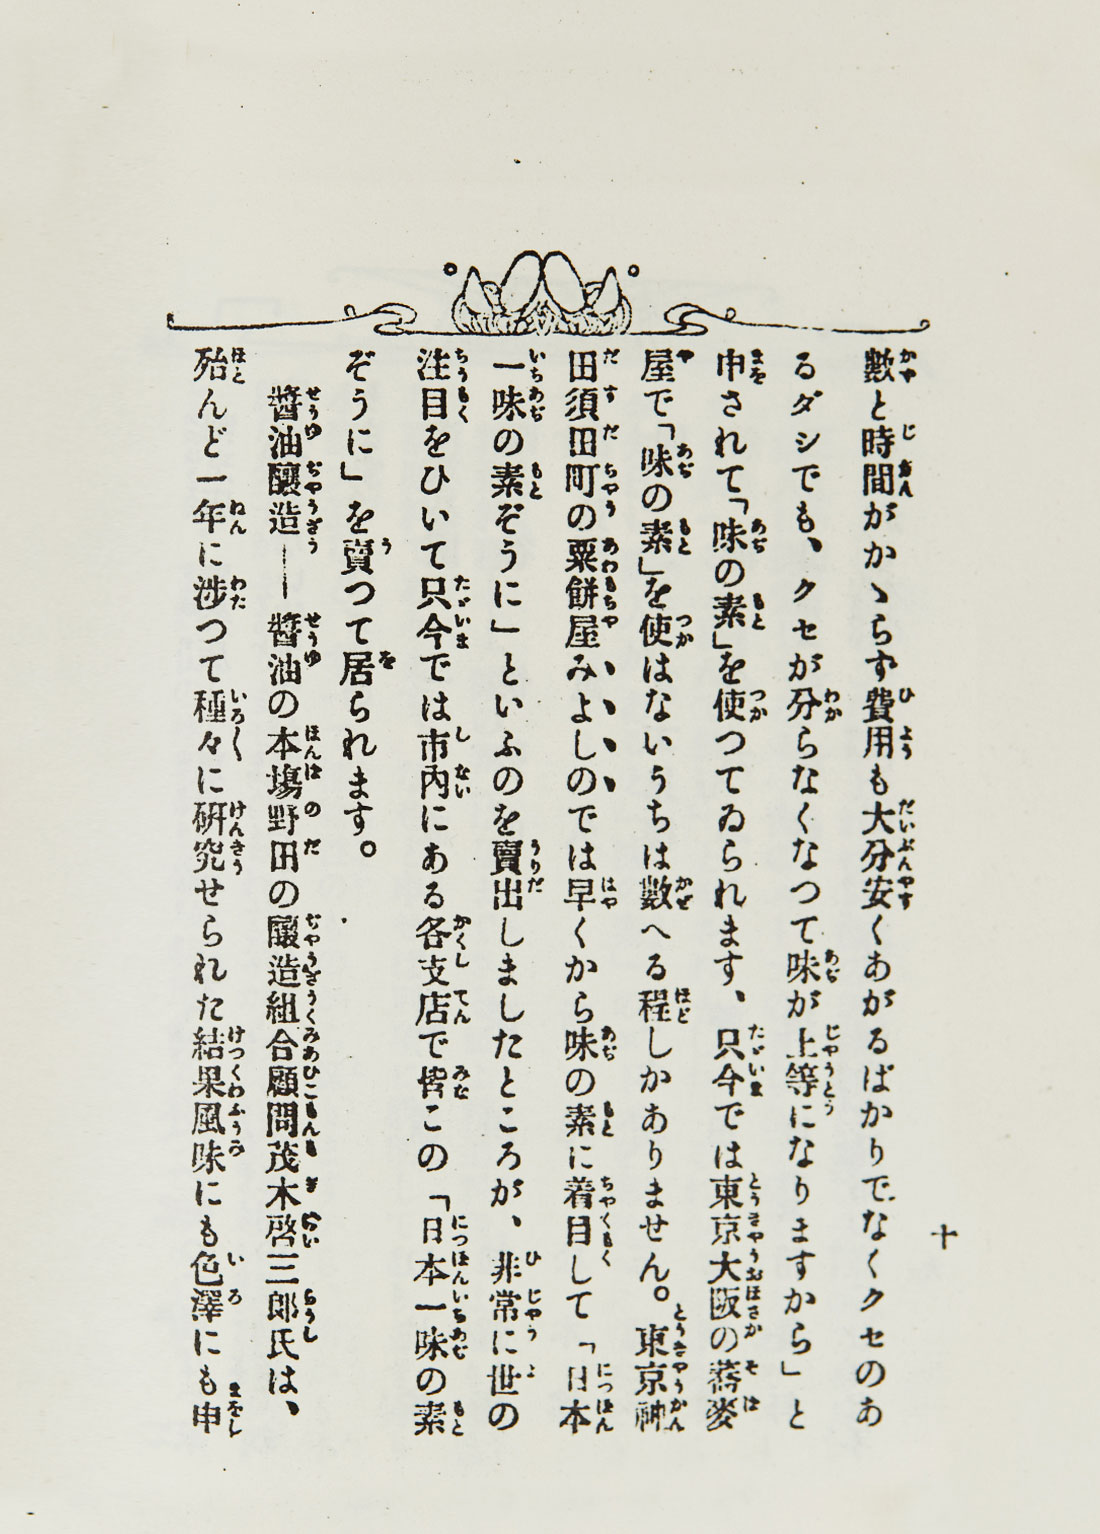 十
數と時間がかゝらず費用も大分安くあがるばかりでなくクセのあ
るダシでも、クセが分らなくなつて味が上等になりますから」と
申されて「味の素」を使つてゐられます、只今では東京大阪の蕎麥
屋で「味の素」を使はないうちは數へる程しかありません。東京神
田須田町の粟餅屋みよしのでは早くから味の素に着目して「日本
一味の素ぞうに」といふのを賣出しましたところが、非常に世の
注目をひいて只今では市內にある各支店で皆この「日本一味の素
ぞうに」を賣つて居られます。
醬油釀造――醬油の本場野田の釀造組合顧問茂木啓三郎氏は、
殆んど一年に渉つて種々に研究せられた結果風味にも色澤にも申